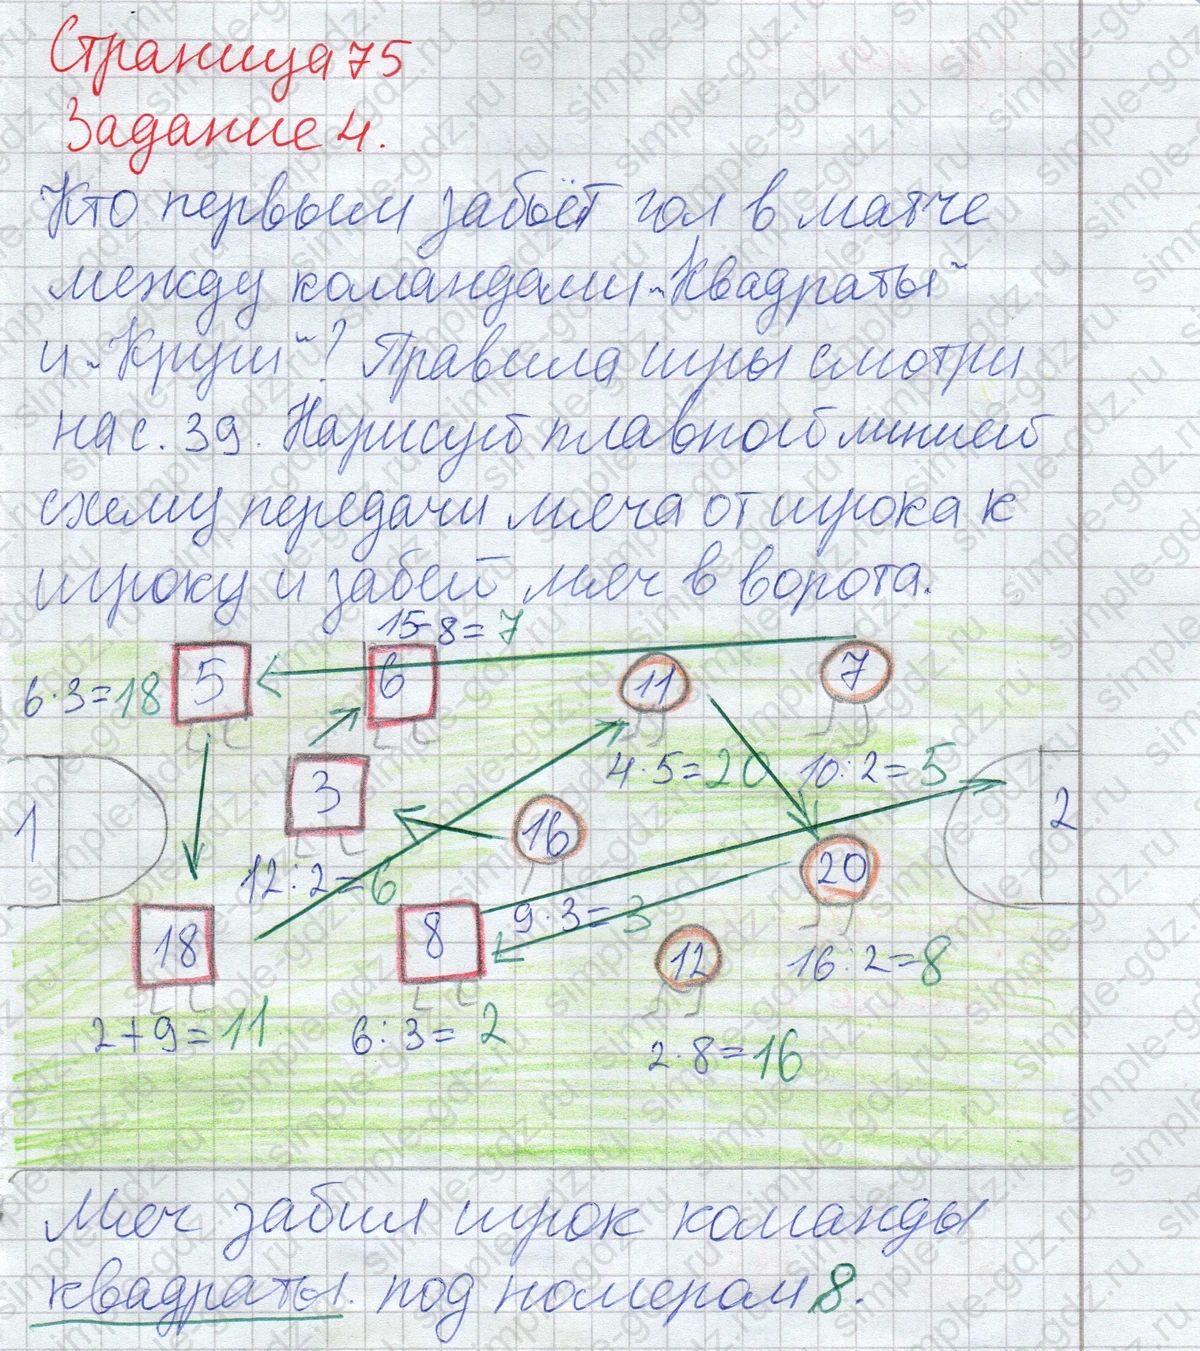 Страница 75
Задание 4.
Кто первым забьёт гол в матче
между командами „Квадраты“
и „Круги“? Правила игры смотри
на с. 39. Нарисуй плавной линией
схему передачи мяча от игрока к
игроку и забей мяч в ворота.
15-8=7
5 6 11 7
6·3=18
4·5=20 10:2=5
3
1 16 2
12:2=6 20
9·3=3
18 8 12 16:2=8
2+9=11 6:3=2
2·8=16
Мяч забил игрок команды
квадраты под номером 8.
simple-gdz.ru